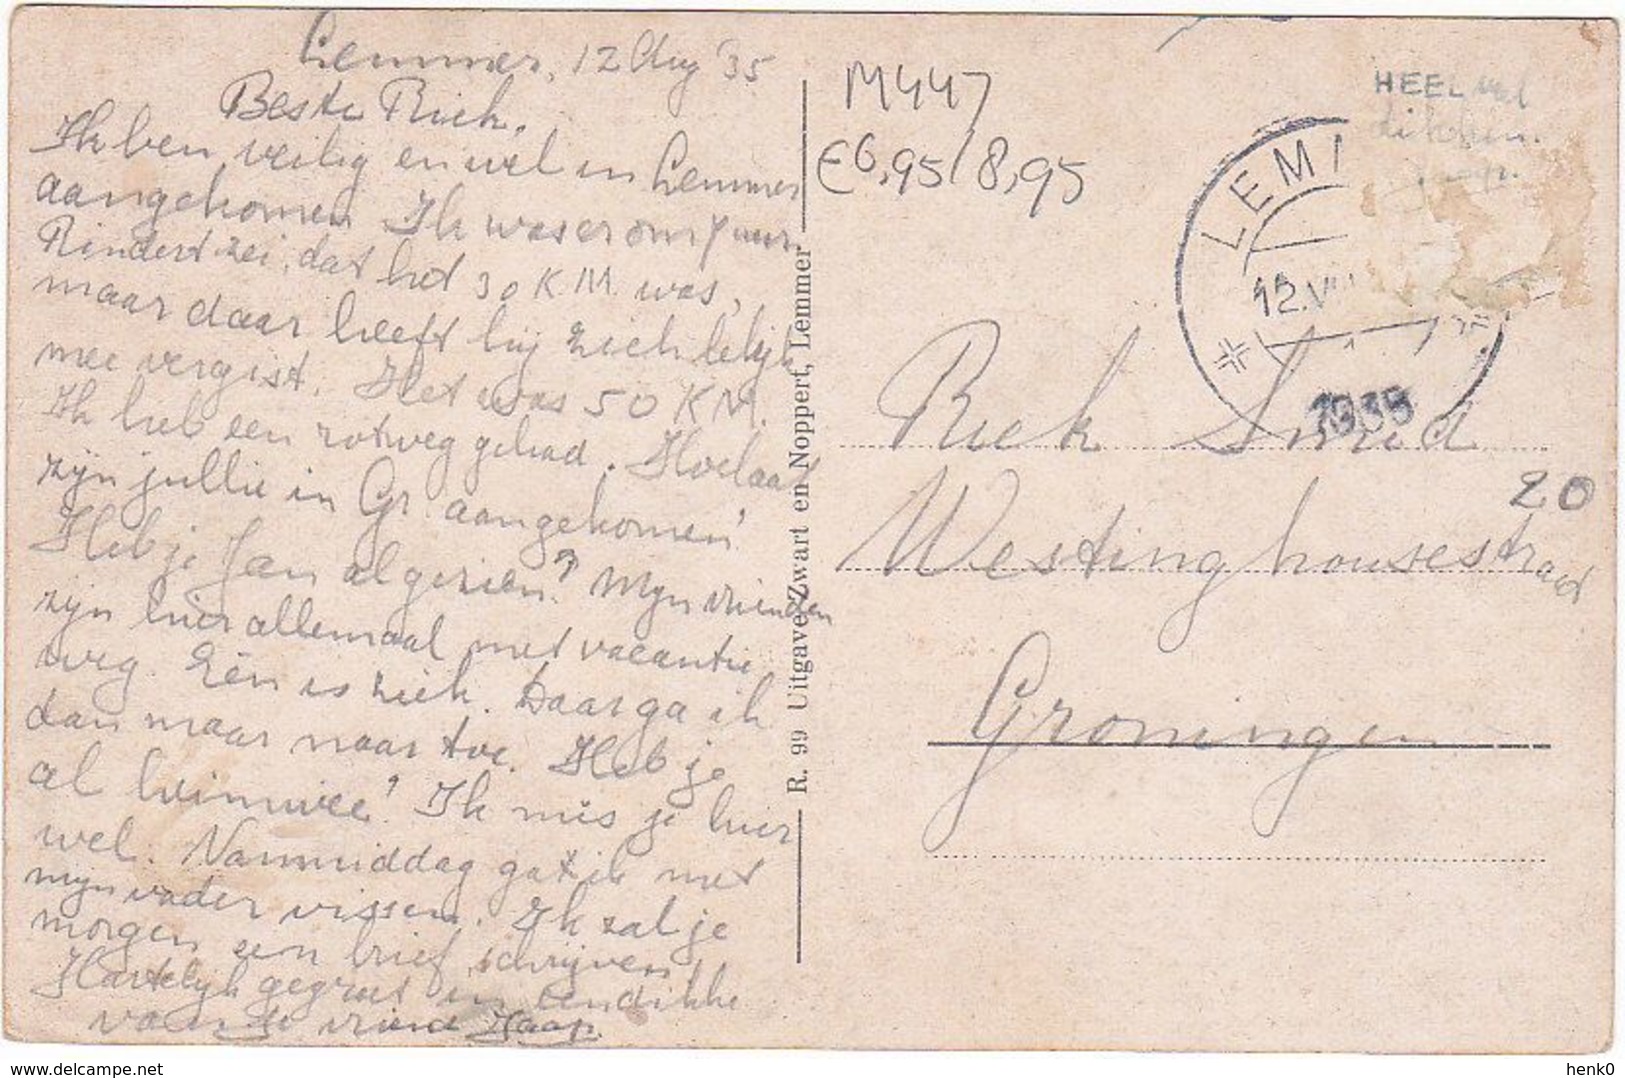 Lemmer, 12 Aug '35
Beste Riek.
Ik ben veilig en wel in Lemmer
aangekomen Ik was er om 7 uur.
Rindert zei, dat het 30 KM. was,
maar daar heeft hij zich lelijk
mee vergist. Het was 50 KM.
Ik heb een rotweg gehad. Hoe laat
zijn jullie in Gr. aangekomen?
Heb je Jan al gezien? Mijn vrienden
zijn hier allemaal met vacantie
weg. Eén is ziek. Daar ga ik
dan maar naar toe. Heb je
al heimwee? Ik mis je hier
wel. Vanmiddag gat ik met
mijn vader vissen. Ik zal je
morgen een brief schrijven
Hartelijk gegroet en een dikke
van je vriend Jaap.
R. 99 Uitgave Zwart en Noppert, Lemmer
M447
€6,95/8,95
HEEL veel
dikken
LEM
12.VII
1935
Riek Smid
Westinghousestraat
20
Groningen
henk0